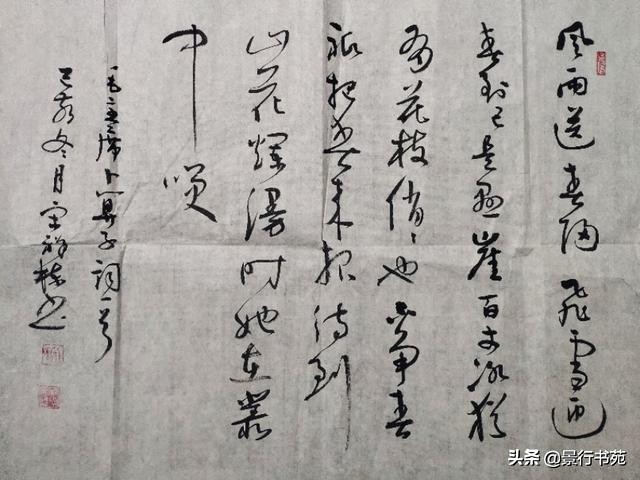 风雨送春归飛雪迎
春到已是悬崖百丈冰犹
有花枝俏〻也不争春
祇把春来报待到
山花爛漫时她在叢
中笑
毛主席卜算子词一首
己亥冬月宋祥书
头条 @景行书苑